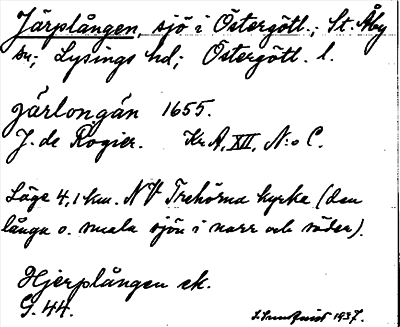 Järplången, sjö i Östergötl.; St. Åby
sn; Lysings hd; Östergötl. l.
Järlongån 1655.
J. de Rogier. Kr. A, XII, N:o C.
Läge 4,1 km. NV Trehörna kyrka (den
långa o. smala sjön i norr och söder).
Hjerplången ek.
G. 44.
1937.